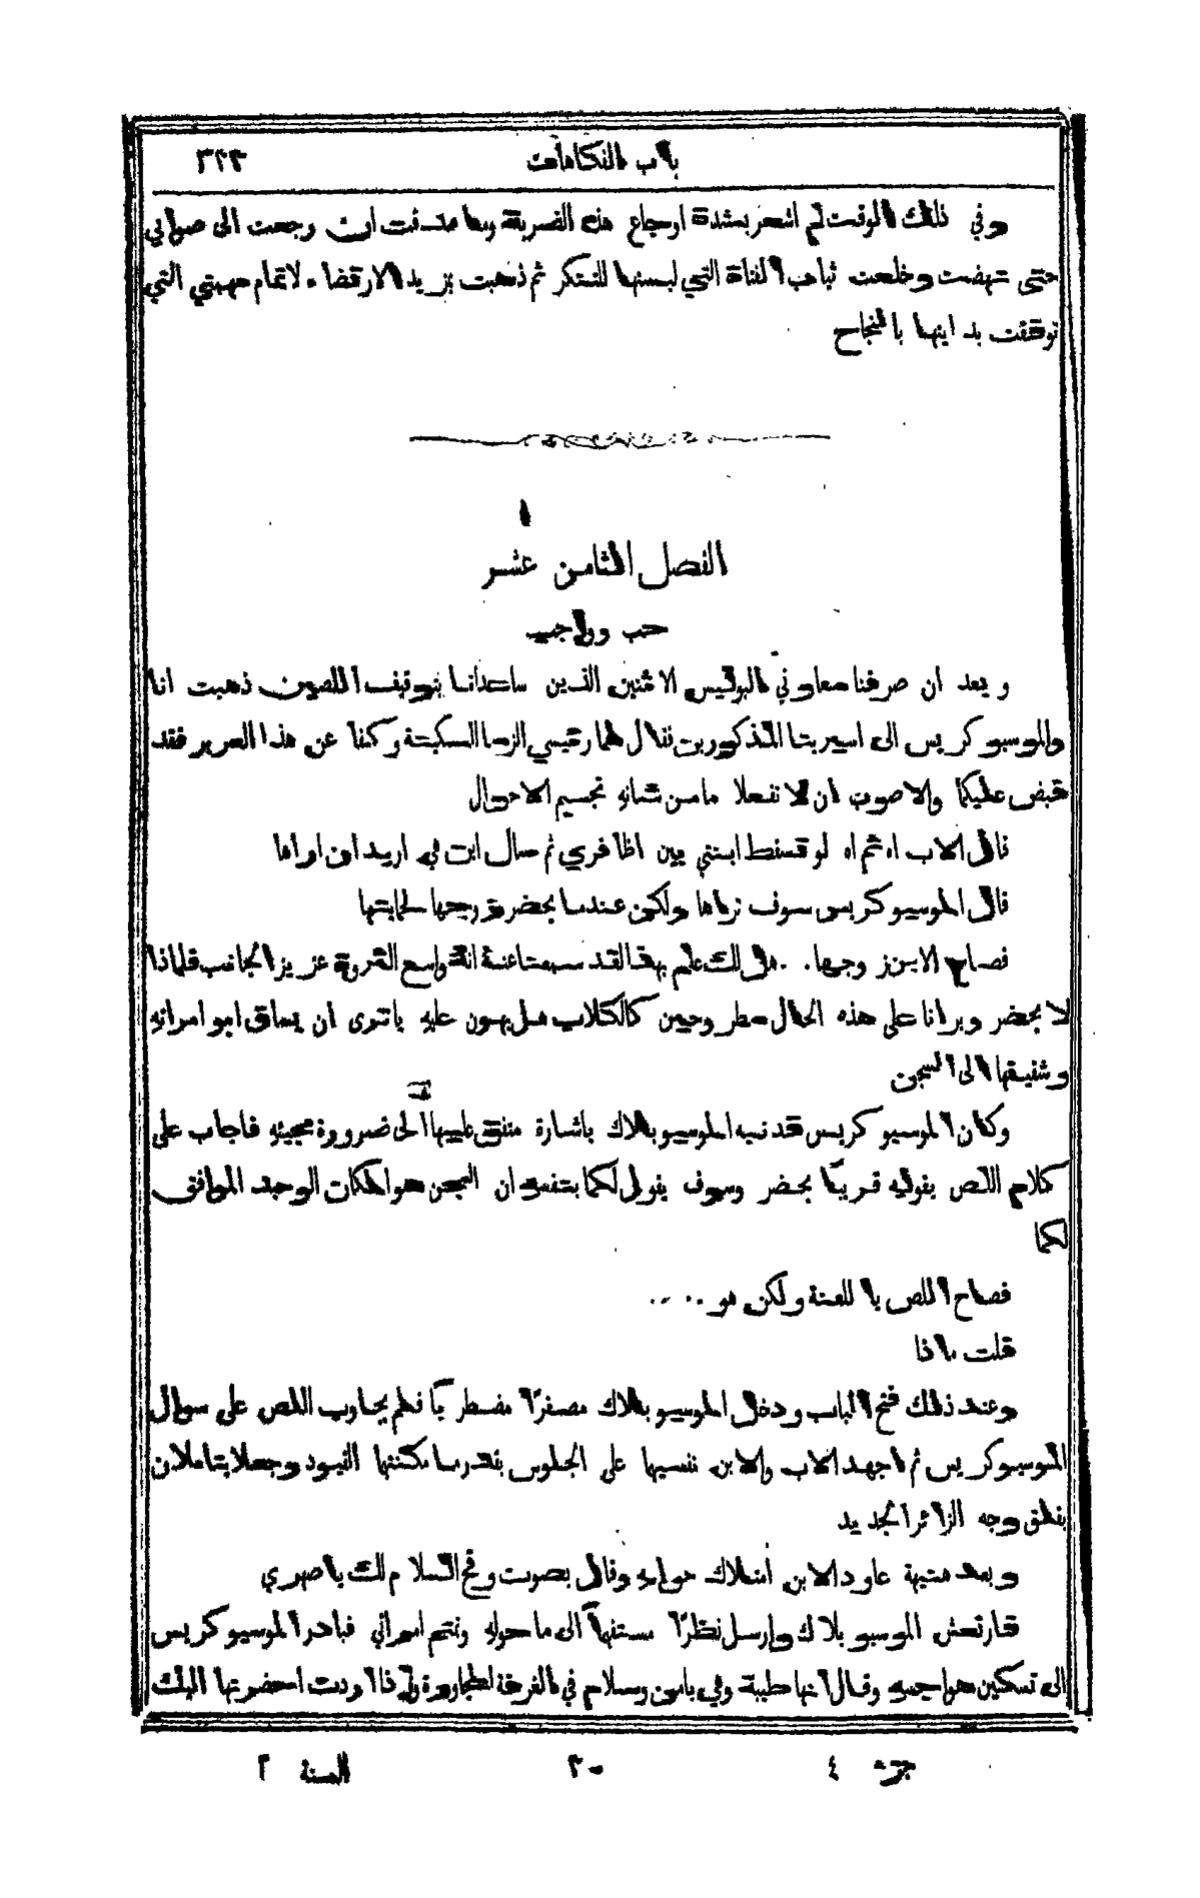 باب الفكاهات ٣٢٣
وفي ذلك الوقت لم اشعر بشدة اوجاع هذه الضربة وما صدقت ان رجعت الى صوابي
حتى نهضت وخلعت ثياب الفتاة التي لبستها للتنكر ثم ذهبت بزيد الارتضاء لاتمام مهمتي التي
توقفت بدايتها بالنجاح
الفصل الثامن عشر
حب وواجب
وبعد ان صرفنا معاوني البوليس الاثنين الذين ساعدانا بتوقيف اللصين ذهبت انا
والموسيو كريس الى اسيرينا المذكورين فقال لهما رفيقي الزما السكينة وكفا عن هذا الهرير فقد
قبض عليكما والاصوب ان لا تفعلا ما من شانه تجسيم الاحوال
قال الاب اه ثم اه لو تسقط ابنتي بين اظافري ثم سال اين هي اريد ان اراها
قال الموسيو كريس سوف تراها ولكن عندما يحضر زوجها لحمايتها
فصاح الابن زوجها . . هل لك علم بهذا لقد سمعنا عنه انه واسع الثروة عزيز الجانب فلماذا
لا يحضر ويرانا على هذه الحال مطروحين كالكلاب هل يهون عليه يا ترى ان يساق ابو امراته
وشقيقها الى السجن
وكان الموسيو كريس قد نبه الموسيو بلاك باشارة متفق عليها الى ضرورة مجيئه فاجاب على
كلام اللص بقوله قريبًا يحضر وسوف يقول لكما بنفسه ان السجن هو المكان الوحيد الموافق
لكما
فصاح اللص يا للعنة ولكن هو . . . .
قلت ماذا
وعند ذلك فتح الباب ودخل الموسيو بلاك مصفرًا مضطربًا فلم يجاوب اللص على سوال
الموسيو كريس ثم اجهد الاب والابن نفسيهما على الجلوس بقدر ما مكنتهما القيود وجعلا يتاملان
بقلق وجه الزائر الجديد
وبعد هنيهة عاود الابن امتلاك حواسه وقال بصوت وقح السلام لك يا صهري
فارتعش الموسيو بلاك وارسل نظرًا مستفهمًا الى ما حوله وتمتم امراتي فبادر الموسيو كريس
الى تسكين هواجسه وقال انها طيبة وفي بامن وسلام في الغرفة المجاورة واذا اردت احضرتها اليك
جزء ٤ ٢٠ السنة ٢